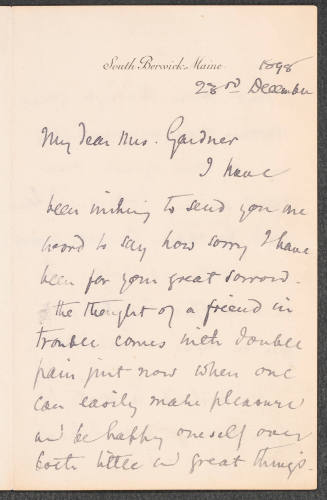 South Berwick. Maine.
1898
23rd December
My dear Mrs. Gardner
I have
been wishing to send you one
word to say how sorry I have
been for your great sorrow.
the thought of a friend in
trouble comes with double
pain just now when one
can easily make pleasure
and be happy oneself over
both little and great things.